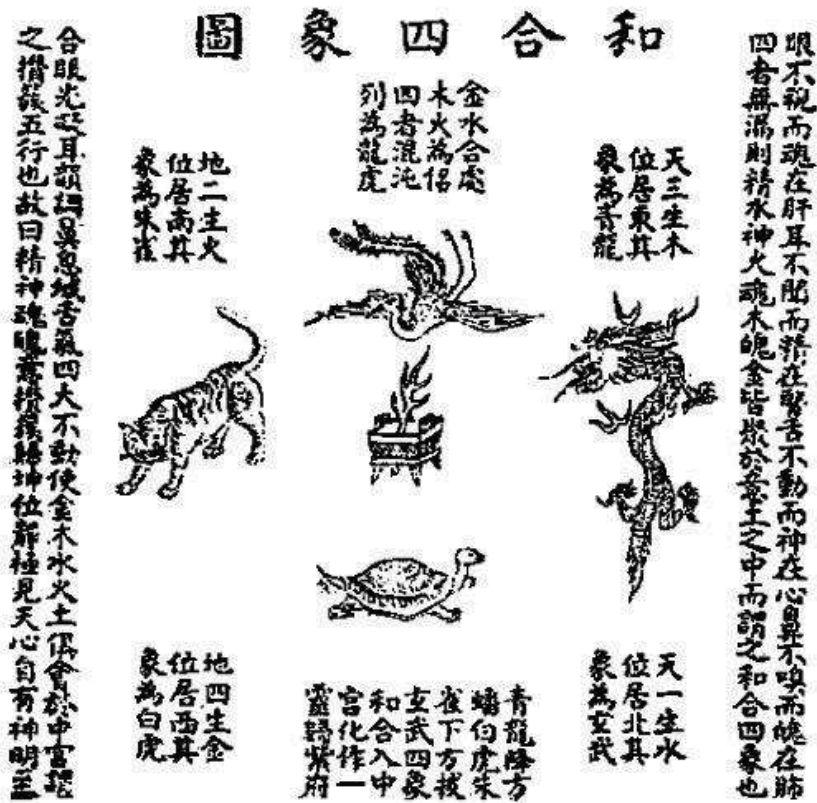 和合四象圖
眼不視而魂在肝耳不聞而精在腎舌不動而神在心鼻不嗅而魄在肺
四者無漏則精水神火魂木魄金皆聚於意土之中而謂之和合四象也
天三生木
位居東其
象為青龍
金水合處
木火為侶
四者混沌
列為龍虎
地二生火
位居南其
象為朱雀
天一生水
位居北其
象為玄武
青龍降方
蟠白虎朱
雀下方
玄武四象
和合入中
宮化作一
靈歸紫府
地四生金
位居西其
象為白虎
合眼光凝耳韻調鼻息緘舌氣四大不動使金木水火土俱會於中宮謂
之攢簇五行也故曰精神魂魄意攢簇歸坤位靜極見天心自有神明至